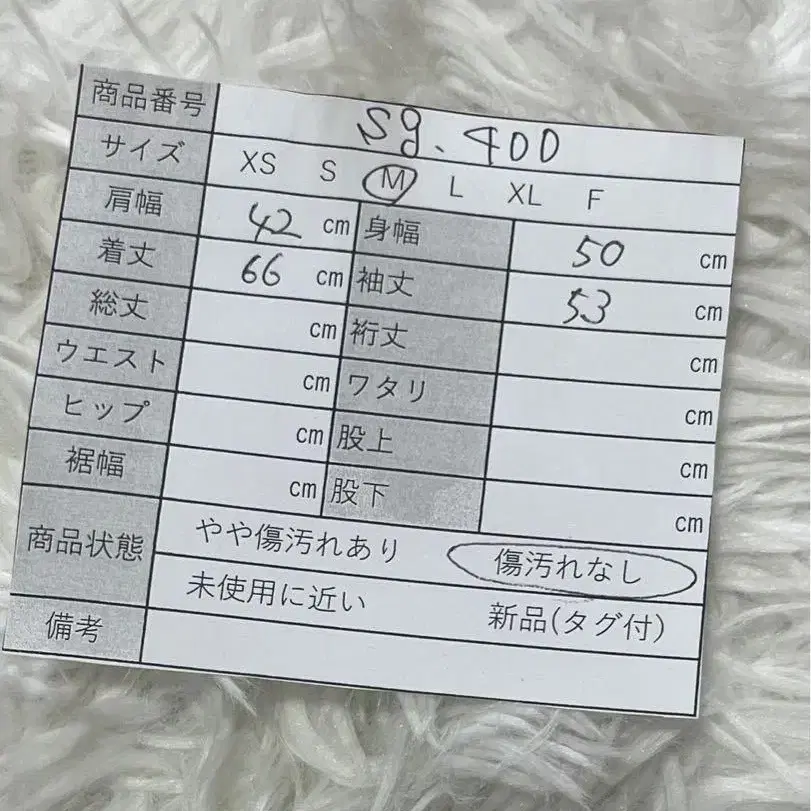 商品番号 sg. 400
サイズ XS S M L XL F
肩幅 42 cm 身幅 50 cm
着丈 66 cm 袖丈 53 cm
総丈 cm 裄丈 cm
ウエスト cm ワタリ cm
ヒップ cm 股上 cm
裾幅 cm 股下 cm
商品状態 やや傷汚れあり 傷汚れなし
未使用に近い 新品(タグ付)
備考